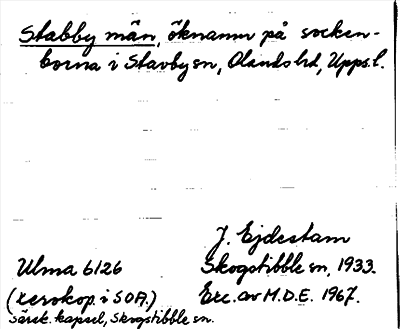 Stabby män, öknamn på socken-
borna i Stavby sn, Olands hd, Upps. l.
J. Ejdestam
Ulma 6126 Skogstibble sn, 1933.
(xerokop. i SOA.) Exc. av M.D.E. 1967.
särsk. kapsel, Skogstibble sn.